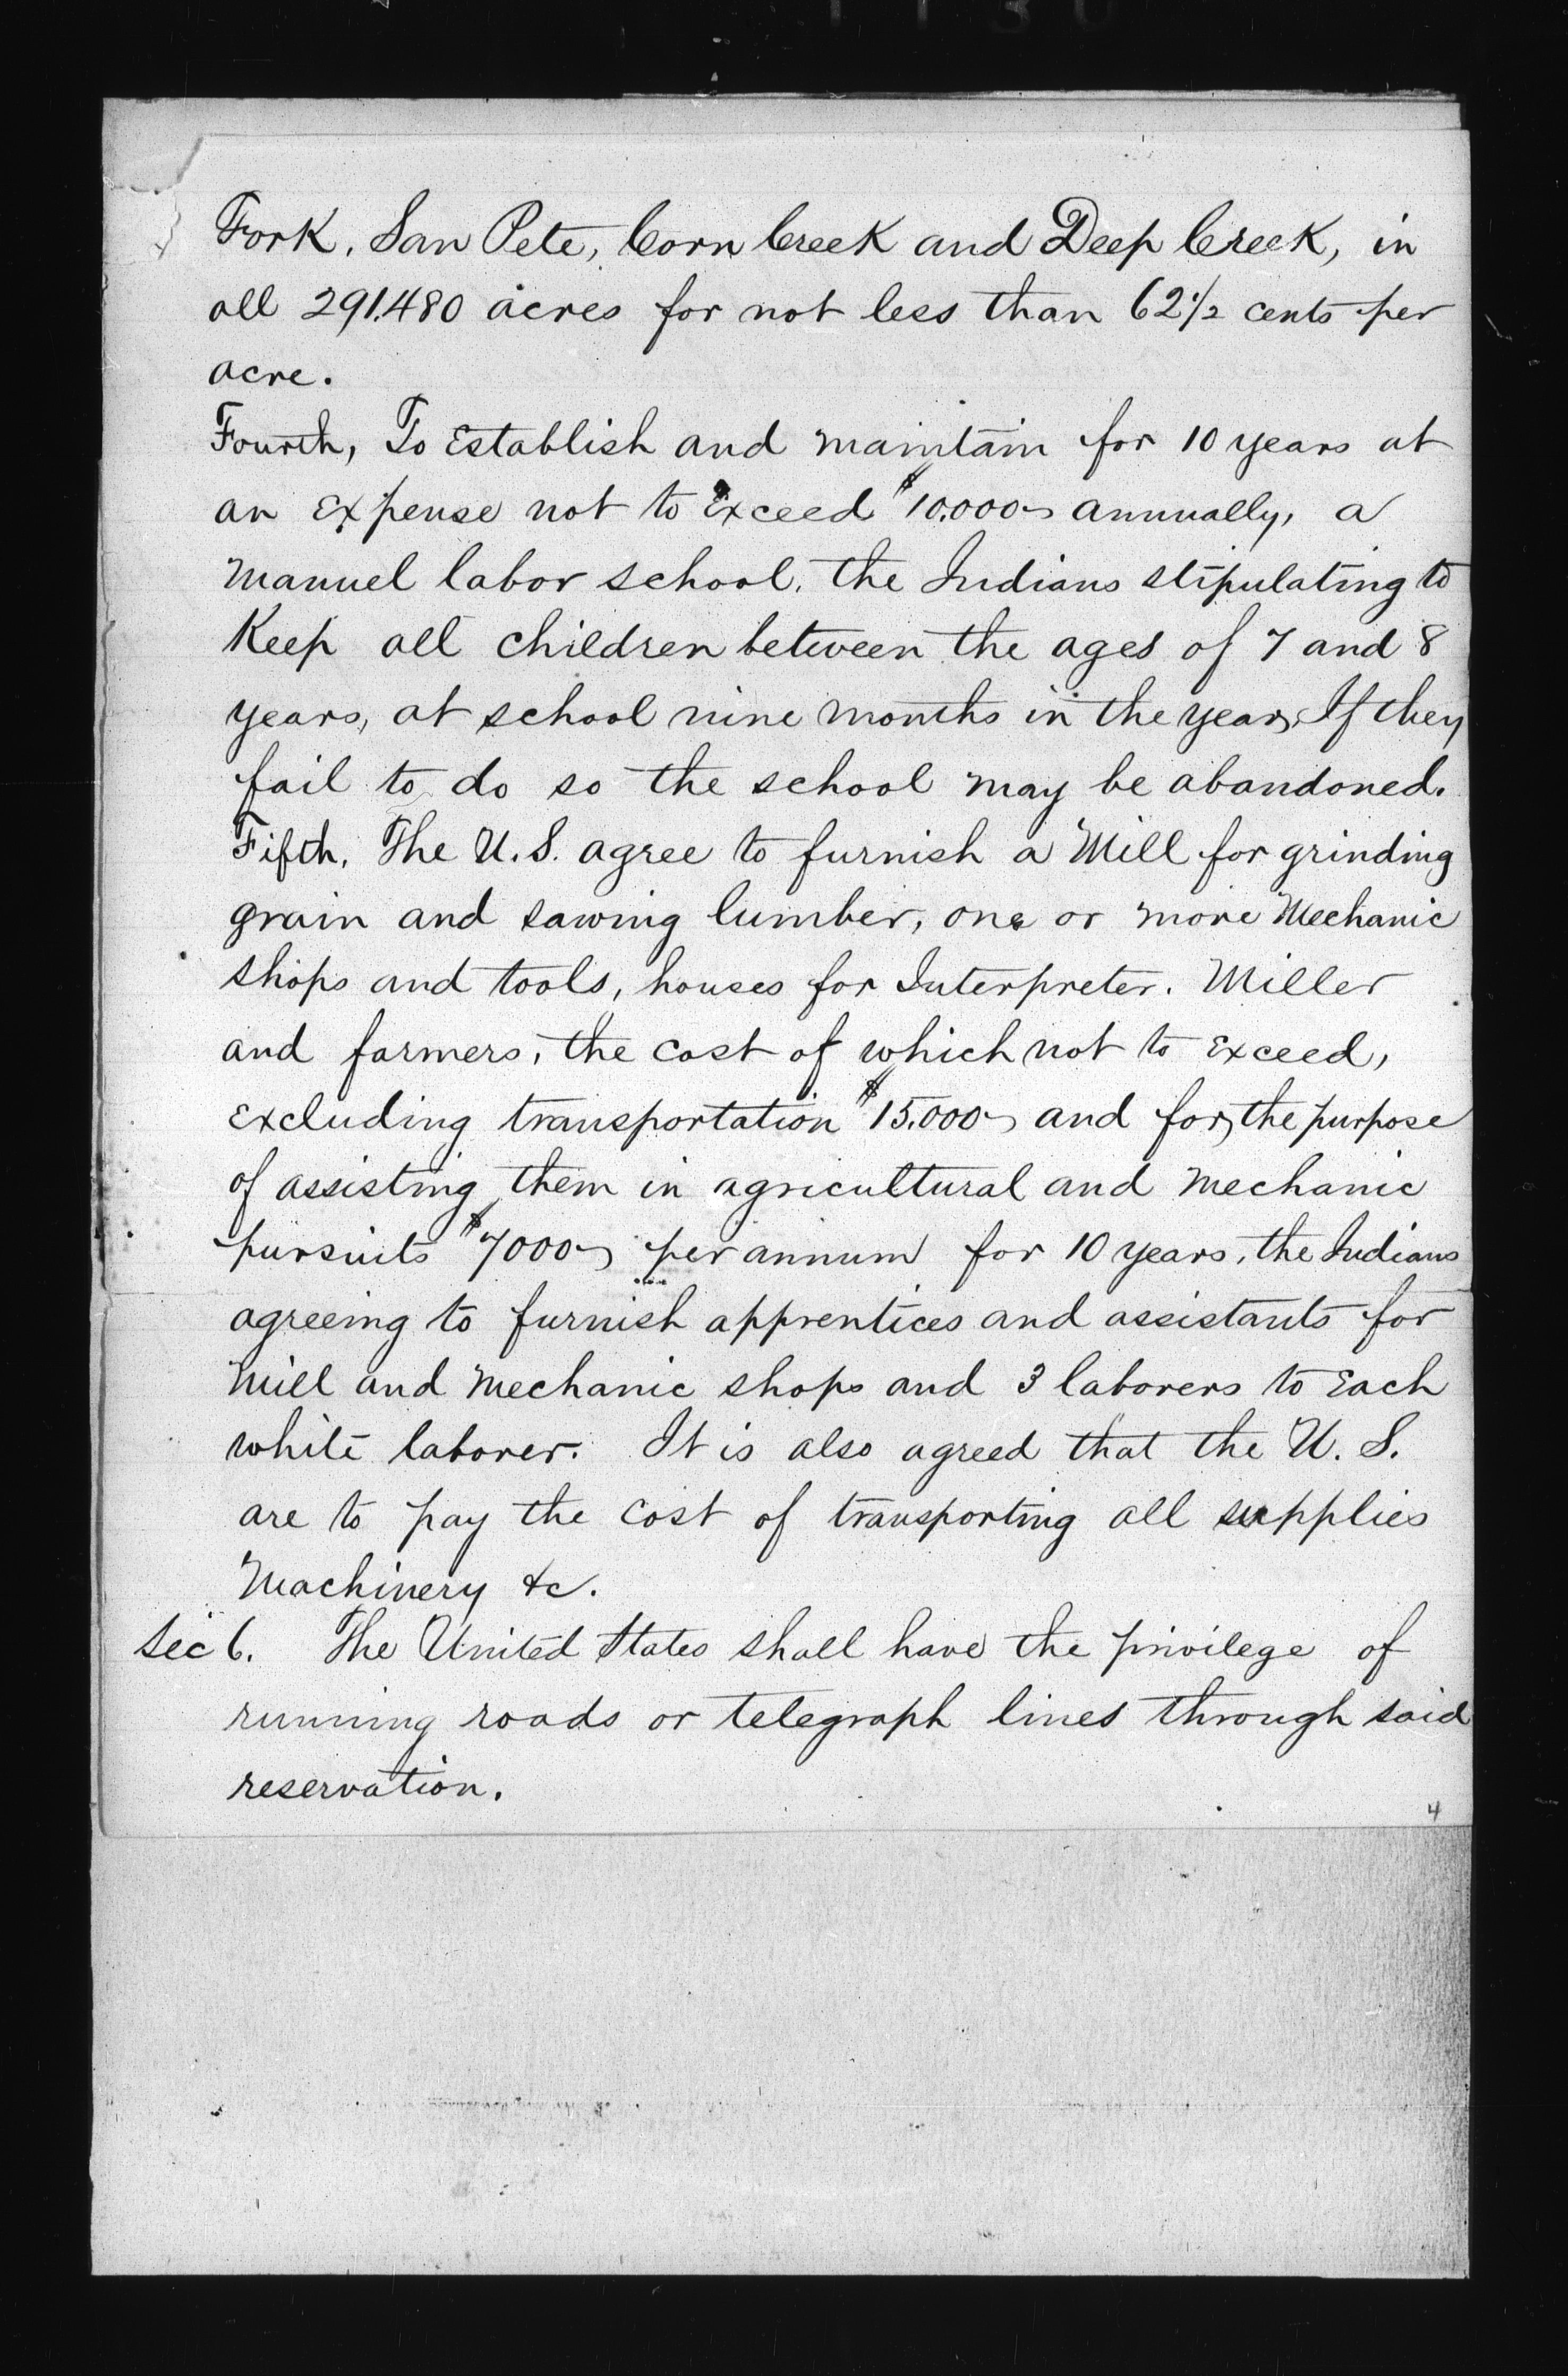 Fork, San Pete, Corn Creek and Deep Creek, in
all 291.480 acres for not less than 62 1/2 cents per
acre.
Fourth, To Establish and maintain for 10 years at
an Expense not to Exceed $10.000 annually, a
manuel labor school, the Indians stipulating to
Keep all children between the ages of 7 and 8
years, at school nine months in the year, If they
fail to do so the school may be abandoned.
Fifth, The U.S. agree to furnish a Mill for grinding
grain and sawing lumber, one or more Mechanic
shops and tools, houses for Interpreter. Miller
and farmers, the cost of which not to Exceed,
Excluding transportation $15.000 and for the purpose
of assisting them in agricultural and mechanic
pursuits $7000 per annum for 10 years, the Indians
agreeing to furnish apprentices and assistants for
Mill and Mechanic shops and 3 laborers to Each
white laborer. It is also agreed that the U.S.
are to pay the cost of transporting all supplies
Machinery &c.
Sec 6. The United States shall have the privilege of
running roads or telegraph lines through said
reservation.
4